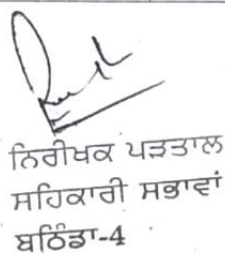 ਨਿਰੀਖਕ ਪੜਤਾਲ
ਸਹਿਕਾਰੀ ਸਭਾਵਾਂ
ਬਠਿੰਡਾ-4